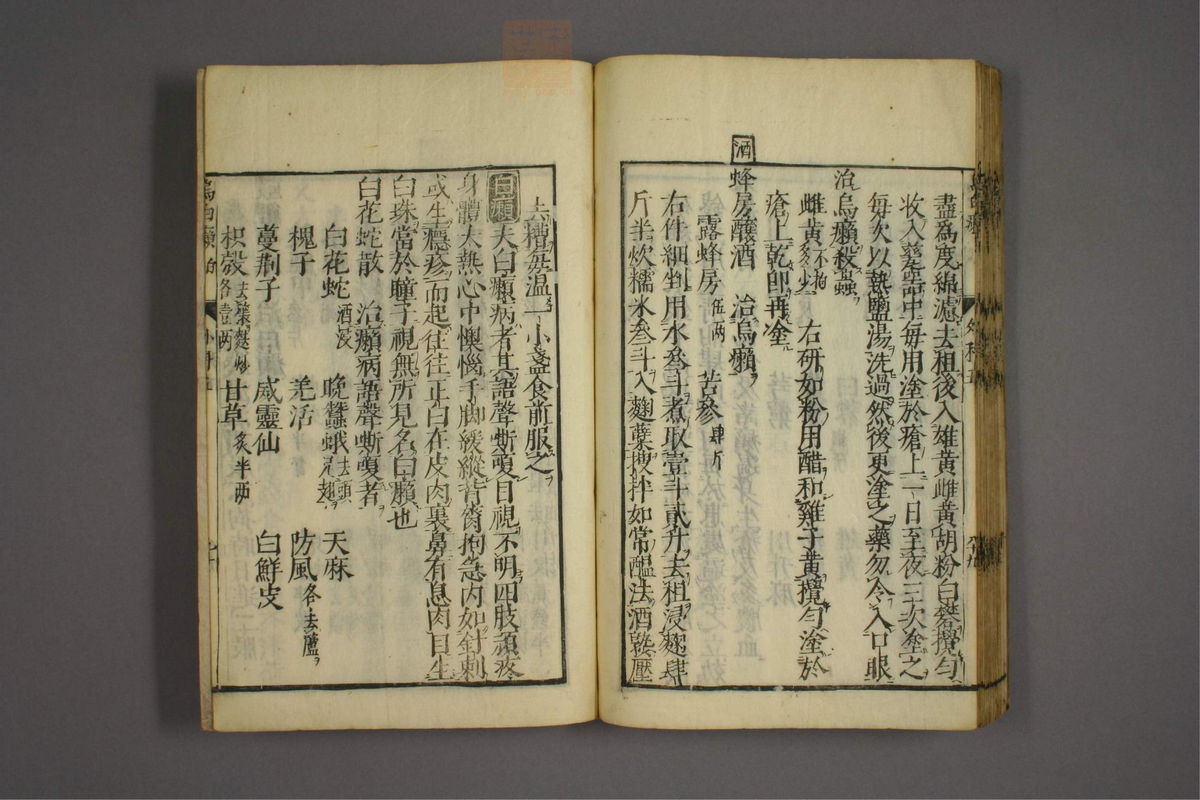 盡為度綿濾去柤後入雄黃雌黃胡粉白礬攪勻
收入甆器中每用塗於瘡上一日至夜三次塗之
每次以熱鹽湯洗過然後更塗之藥勿令入口眼
治烏癩殺蟲
雌黃不拘多少 右研如粉用醋和雞子黃攪勻塗於
瘡上乾即再塗
酒
蜂房釀酒 治烏癩
露蜂房伍兩 苦參肆斤
右件細剉用水叁斗煮取壹斗貳升去柤浸麴肆
斤半炊糯米叁斗入麴蘖搜拌如常醞法酒熟壓
去糟每溫一小盞食前服之
白癩 夫白癩病者其語聲嘶嗄目視不明四肢㿏疼
身體大熱心中懊惱手脚緩縱背膂拘急內如針刺
或生癮疹而起往往正白在皮肉裏鼻有息肉目生
白珠當於瞳子視無所見名曰癩也
白花蛇散 治癩病語聲嘶嗄者
白花蛇酒浸 晚蠶蛾去頭足翅 天麻
槐子 羌活 防風各去蘆
蔓荊子 威靈仙 白鮮皮
枳殼去穰麩炒各壹兩 甘草炙半兩